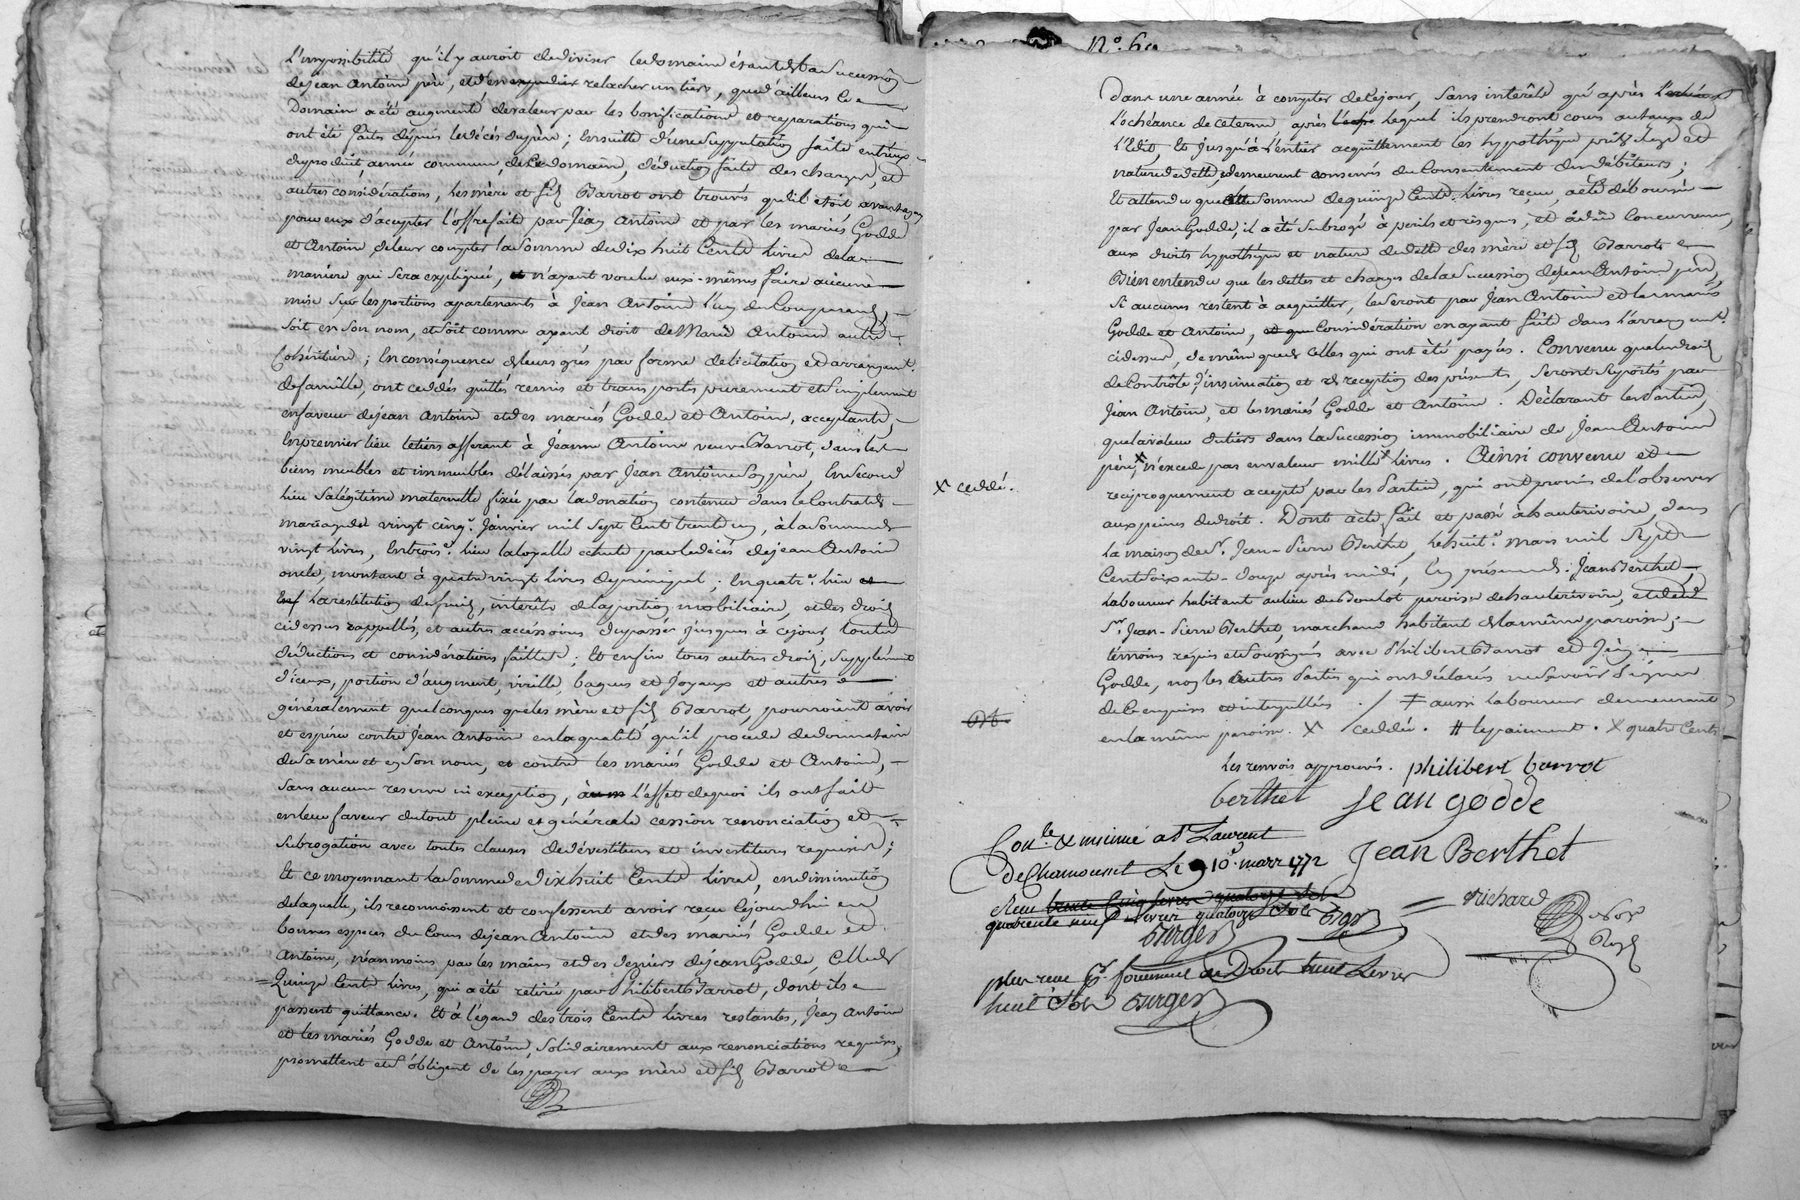 L'impossibilité qu'il y auroit de diviser le domaine étant de la sucession
de jean Antoine père, et d'en relacher un tiers, que d'ailleurs le
Domaine a été augmenté de valeur par les bonifications et reparations qui
ont été faites depuis le décès du père ; Ensuitte d'une supputation faite entr'eux
du produit, année commune, de ce domaine, déduction faite des charges, et
autres considérations, les mère et fils Barrot ont trouvés qu'il étoit avantageux
pour eux d'accepter l'offre faite par Jean Antoine et par les mariés Godde
et Antoine, de leur compter la somme de dix huit Cents livres de la
manière qui sera expliquée, n'ayant voulu eux-mêmes faire aucune
mise sur les portions apartenants à Jean Antoine l'un des Comparants,
soit en son nom, et soit comme ayant droit de Marie Antoine autre
Cohéritière ; En conséquence de leurs grés par forme de licitation et arrangement
de famille, ont ceddés quittés remis et transportés purement et simplement
en faveur de jean Antoine et des mariés Godde et Antoine, acceptants,
En premier lieu le tiers afferant à Jeanne Antoine veuve Barrot, dans les
biens meubles et immeubles délaissés par Jean Antoine son père, En second
lieu sa légitime maternelle fixée par la donation contenue dans le Contrat de
mariage du vingt cinq.e Janvier mil sept Cent trente un, à la somme de
vingt livres, En trois.e lieu la échute par le décès de jean Antoine
oncle, montant à quatre vingt livres de principal ; En quatr.e lieu
La restitution des fruits, intérêts de la portion mobiliaire, et des droits
cidessus rappellés, et autres accéssoires du passé jusques à ce jour, toutes
déductions et considérations faittes ; Et enfin tous autres droits, supplément
d'iceux, portion d'augment, virille, bagues et Joyaux et autres
généralement quelconques que les mère et fils Barrot, pourroient avoir
et espérer contre Jean Antoine en la qualité qu'il procede de donnataire
de sa mère et en son nom, et contre les mariés Godde et Antoine,
sans aucune reserve ni exception, à l'effet de quoi ils ont fait
en leur faveur de tout pleine et générale cession renonciation et
subrogation avec toutes clauses de dévestiture et investiture requises ;
Et ce moyennant la somme de dix huit Cents livres, en diminution
de laquelle, ils reconnoissent et confessent avoir reçu cejourdhui en
bonnes espèces du Cours de jean Antoine et des mariés Godde et
Antoine, néanmoins par les mains et des deniers de jean Godde, Celle de
Quinze Cents livres, qui a été retirée par Philibert Barrot, dont ils
passent quittance. Et à l'égard des trois Cents livres restantes, Jean Antoine
et les mariés Godde et Antoine, solidairement aux renonciations requises,
promettent et s'obligent de les payer aux mère et fils Barrot
N.o 60
Dans une année à compter de ce jour, sans intérêts qu'après
L'échéance de ce terme après lequel ils prendront cours au taux de
L'Edit, Et jusqu'à l'entier acquittement les hypothèque privilège et
nature de dette, demeurent conservés du Consentement des débiteurs ;
Et attendu que somme de quinze Cents livres reçue, a été déboursée
par Jean Godde, il a été subrogé à perils et risques, et à dûe Concurrence,
aux droits hypothèque et nature de dette des mère et fils Barrot
Bien entendu que les dettes et charges de la sucession de jean Antoine père,
si aucunes restent à acquitter, le seront par Jean Antoine et les mariés
Godde et Antoine, Considération en ayant été faite dans l'arrangement
cidessus, de même que de celles qui ont été payés. Convenu que les droits
de Contrôle, d'insinuation et de reception des présentes, seront suportés par
Jean Antoine, et les mariés Godde et Antoine. Déclarant les Parties,
que la valeur du tiers dans la succession immobiliaire de Jean Antoine
père, X n'excede pas en valeur mille X livres. Ainsi convenu et
reciproquement accepté par les Parties, qui ont promis de l'observer
aux peines de droit. Dont acte fait et passé à hauterivoire, dans
La maison de S.r Jean-Pierre Berthet, le huit.e mars mil sept
Cent soixante-douze après midi, En présence de Jean Berthet,
Laboureur habitant au lieu du Boulot paroisse de hauterivoire, et de
S.r Jean-Pierre Berthet, marchand habitant de la même paroisse,
témoins requis et soussignés avec Philibert Barrot et Jean
Godde, non les autres Parties qui ont déclarés ne savoir signer
de ce enquises et interpellées ./ ‡ aussi laboureur demeurant
en la même paroisse. X ceddée. # le paiement. X quatre Cents
X ceddé.
Les renvois approuvés. philibert barrot
berthet jean godde
Con.lé & insinué a St Laurent
De Chamousset Le 9 mars 1772 Jean Berthet
Reçu
quarente neuf Livres quatorze sols
Burger
richard
plus reçu p.r fourniture de Droits huit Livres
huit sols Burger